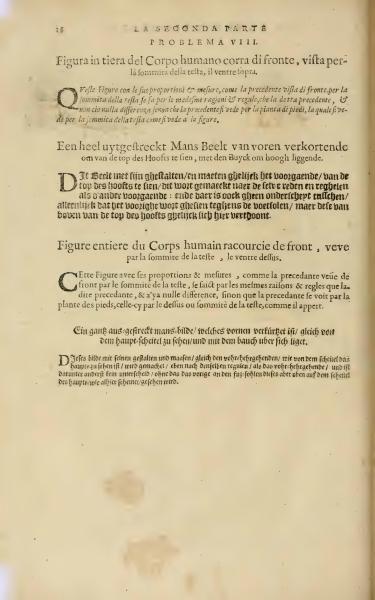 LA SECONDA PARTE
PROBLEMA VIII.
Figura in tiera del Corpo humano corra di fronte, vista per-
la sommita della testa, il ventre sopra.
QVeste Figure con le sue proportioni & mesure, come la precedente vista di fronte, per la
sommita della testa se fa per le medesme ragioni & regole, che la detta precedente, &
non cio nulla differenza senon che la precedente si vede per la pianta di piedi, la quale si ve-
de per la sommita della testa come si vede a la figura.
Een heel uytgestreckt Mans Beelt van voren verkortende
om van de top des Hoofts te sien, met den Buyck om hoogh liggende.
DIt Beelt met sijn ghestalten/en maeten ghelijck het voorgaende/van de
top des hoofts te sien/dit wort gemaeckt naer de selve reden en reghelen
als d'ander voorgaende: ende daer is oock gheen onderscheyt tusschen/
alleenlijck dat het voorighe wort ghesien teghens de voetsolen/ maer dese van
boven van de top des hoofts ghelijck sich hier verthoont.
Figure entiere du Corps humain racourcie de front, veve
par la sommite de la teste, le ventre dessus.
CEtte Figure avec ses proportions & mesures, comme la precedante veüe de
front par le sommité de la teste, se faict par les mesmes raisons & regles que la-
dite precedante, & a'ya nulle difference, sinon que la precedante se voit par la
plante des pieds, celle-cy par le dessus ou sommité de la teste, comme il appert.
Ein gantz aus-gestreckt mans-bilde/ welches vornen verkürtzet ist/ gleich von
dem haupt-scheitel zu sehen/und mit dem bauch uber sich liget.
DIeses bilde mit seinen gestalten und maassen/ gleich den vohr-hergehenden/ wie von dem scheitel das
haupts zu sehen ist/ wird gemachet/ eben nach denselben regulen/ als das vohr-hergehende/ und ist
darunter anderst kein unterscheid/ ohne das das vorige an den fus-sohlen dieses aber oben auf dem scheitel
des haupts/ wie alhier scheinet/ gesehen wird.